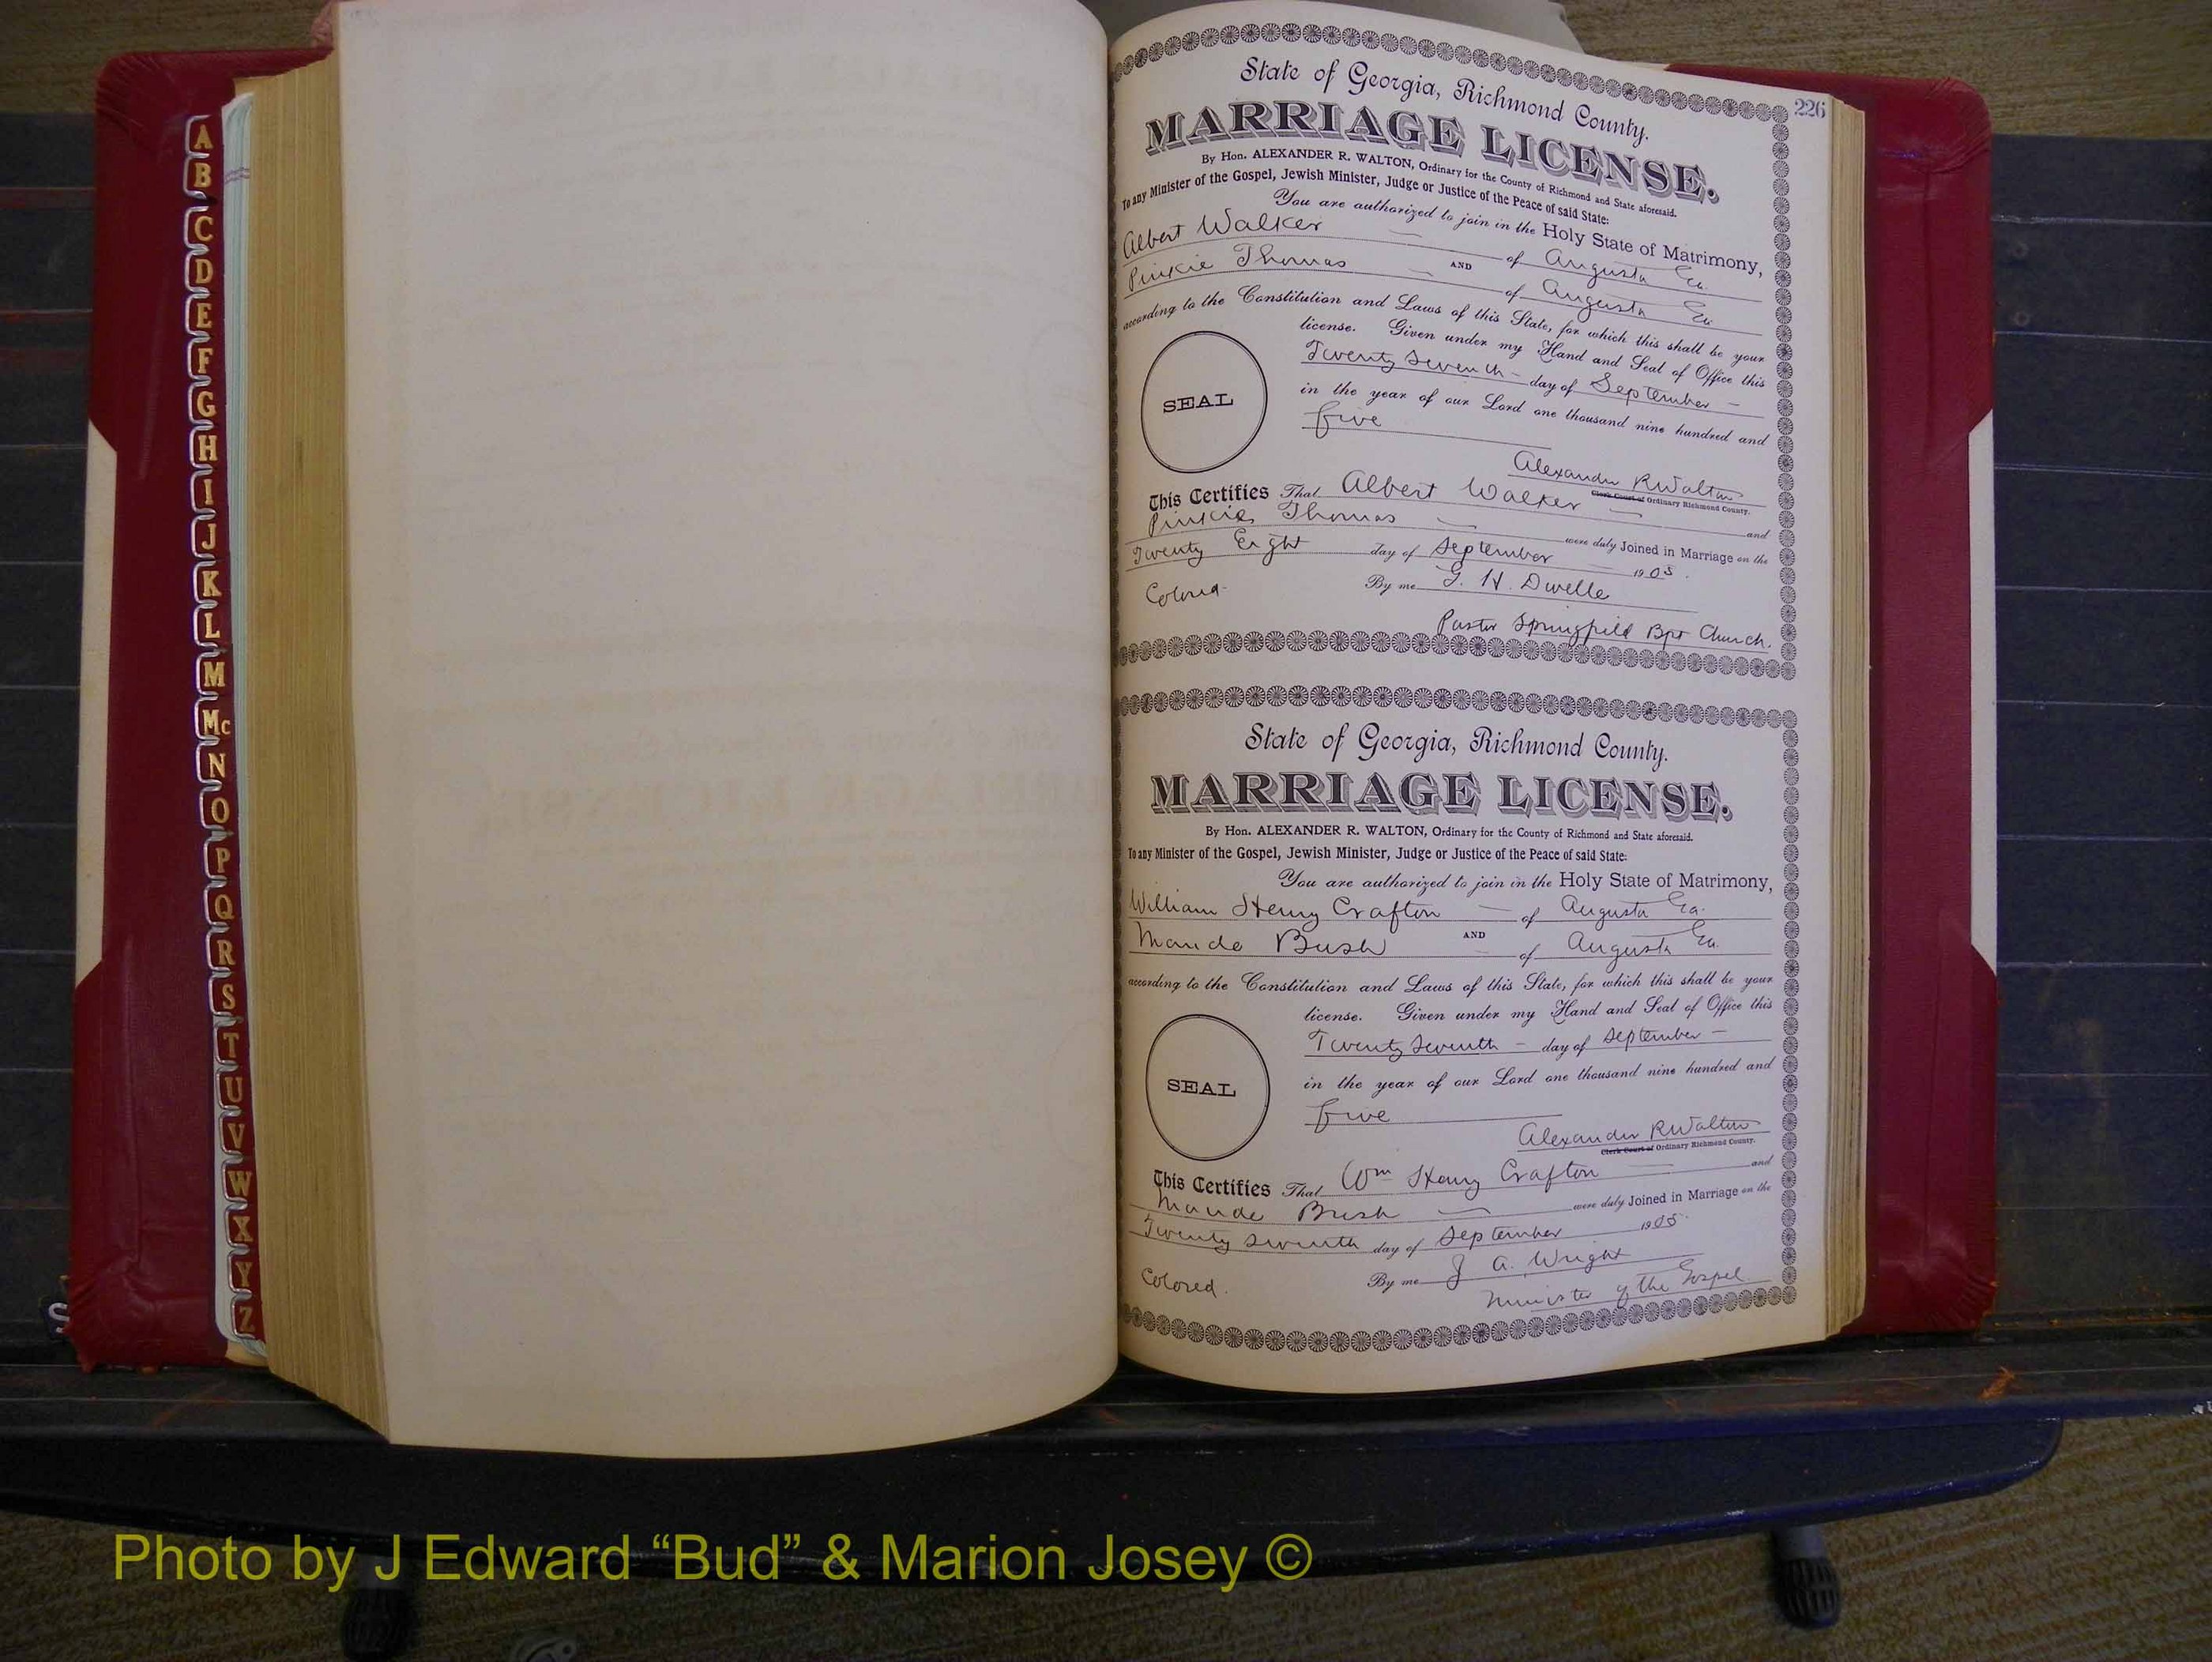 A
B
C
D
E
F
G
H
I
J
K
L
M
Mc
N
O
P
Q
R
S
T
U
V
W
X
Y
Z
226
State of Georgia, Richmond County.
MARRIAGE LICENSE.
By Hon. ALEXANDER R. WALTON, Ordinary for the County of Richmond and State aforesaid.
To any Minister of the Gospel, Jewish Minister, Judge or Justice of the Peace of said State:
You are authorized to join in the Holy State of Matrimony,
Albert Walker of Augusta Ga.
AND
Pinkie Thomas of Augusta Ga
according to the Constitution and Laws of this State, for which this shall be your
license. Given under my Hand and Seal of Office this
Twenty Seventh day of September
in the year of our Lord one thousand nine hundred and
five
SEAL
Alexander R Walton
Clerk Court of Ordinary Richmond County.
This Certifies That Albert Walker and
Pinkie Thomas were duly Joined in Marriage on the
Twenty Eight day of September 1905.
Colored By me G. H. Dwelle
Pastor Springfield Bpt Church.
State of Georgia, Richmond County.
MARRIAGE LICENSE.
By Hon. ALEXANDER R. WALTON, Ordinary for the County of Richmond and State aforesaid.
To any Minister of the Gospel, Jewish Minister, Judge or Justice of the Peace of said State:
You are authorized to join in the Holy State of Matrimony,
William Henry Crafton of Augusta Ga.
AND
Maude Bush of Augusta Ga.
according to the Constitution and Laws of this State, for which this shall be your
license. Given under my Hand and Seal of Office this
Twenty Seventh day of September
in the year of our Lord one thousand nine hundred and
five
SEAL
Alexander R Walton
Clerk Court of Ordinary Richmond County.
This Certifies That Wm Henry Crafton and
Maude Bush were duly Joined in Marriage on the
Twenty seventh day of September 1905.
Colored. By me J A. Wright
Minister of the Gospel
Photo by J Edward “Bud” & Marion Josey ©